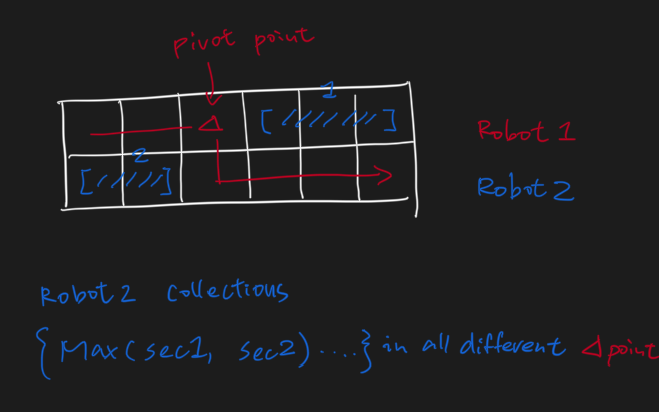 pivot point
1
Δ
[///////]
Robot 1
2
[/////]
Robot 2
Robot 2 collections
{Max(sec1, sec2)....} in all different Δ point